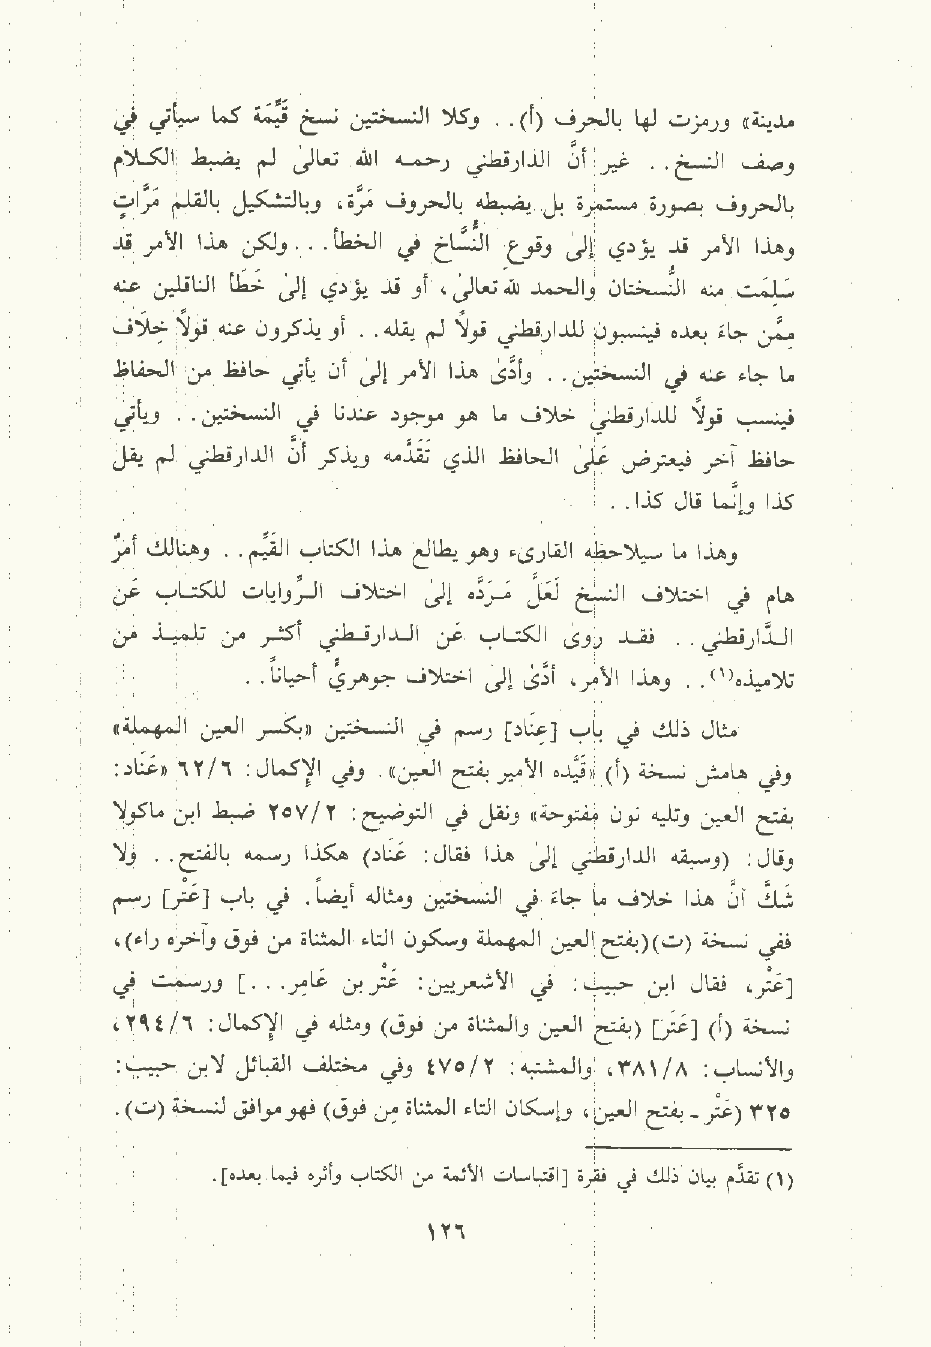 مدينة» ورمزت لها بالحرف (أ). . وكلا النسختين نسخ قَيِّمَة كما سيأتي في
وصف النسخ. . غير أنّ الدارقطني رحمه الله تعالىٰ لم يضبط الكلام
بالحروف بصورة مستمرّة بل يضبطه بالحروف مَرّة، وبالتشكيل بالقلم مَرّاتٍ
وهذا الأمر قد يؤدي إلىٰ وقوع النُّسَّاخ في الخطأ. . . ولكن هذا الأمر قد
سَلِمَت منه النسختان والحمد لله تعالىٰ، أو قد يؤدي إلىٰ خَطَأ الناقلين عنه
ممَّن جاءَ بعده فينسبون للدارقطني قولاً لم يقله. . أو يذكرون عنه قولاً خِلافَ
ما جاء عنه في النسختين. . وأدَّىٰ هذا الأمر إلىٰ أن يأتي حافظ من الحفاظ
فينسب قولاً للدارقطني خلاف ما هو موجود عندنا في النسختين. . ويأتي
حافظ آخر فيعترض عَلىٰ الحافظ الذي تَقَدَّمه ويذكر أنّ الدارقطني لم يقل
كذا وإنَّما قال كذا. .
وهذا ما سيلاحظه القارىء وهو يطالع هذا الكتاب القَيِّم. . وهنالك أمرٌ
هام في اختلاف النسخ لَعَلَّ مَرَدَّه إلىٰ اختلاف الـروايات للكتـاب عَن
الـدَّارقطني. . فقـد روىٰ الكتـاب عَن الـدارقـطـني أكثـر من تلميـذ من
تلاميذه(١). . وهذا الأمر، أدّىٰ إلىٰ اختلاف جوهريٍّ أحياناً. .
مثال ذلك في بابِ [عِنَاد] رسم في النسختين «بكسر العين المهملة»
وفي هامش نسخة (أ) «قَيَّده الأمير بفتح العين». وفي الإكمال: ٦٢/٦ «عَنَاد:
بفتح العين وتليه نون مفتوحة» ونقل في التوضيح: ٢٥٧/٢ ضبط ابن ماكولا
وقال: (وسبقه الدارقطني إلىٰ هذا فقال: عَنَاد) هكذا رسمه بالفتح. . وَلا
شَكَّ أنّ هذا خلاف ما جاءَ في النسختين ومثاله أيضاً. في باب [عَثْر] رسم
ففي نسخة (ت)(بفتح العين المهملة وسكون التاء المثناة من فوق وآخره راء)،
[عَتْر، فقال ابن حبيب: في الأشعريين: عَتْر بن عَامِر. . .] ورسمت في
نسخة (أ) [عَتَر] (بفتح العين والمثناة من فوق) ومثله في الإكمال: ٢٩٤/٦،
والأنساب: ٣٨١/٨، والمشتبه: ٤٧٥/٢ وفي مختلف القبائل لابن حبيب:
٣٢٥ (عَتْر - بفتح العين، وإسكان التاء المثناة مِن فوق) فهو موافق لنسخة (ت).
(١) تقدَّم بيان ذلك في فقرة [اقتباسات الأئمة من الكتاب وأثره فيما بعده].
١٢٦